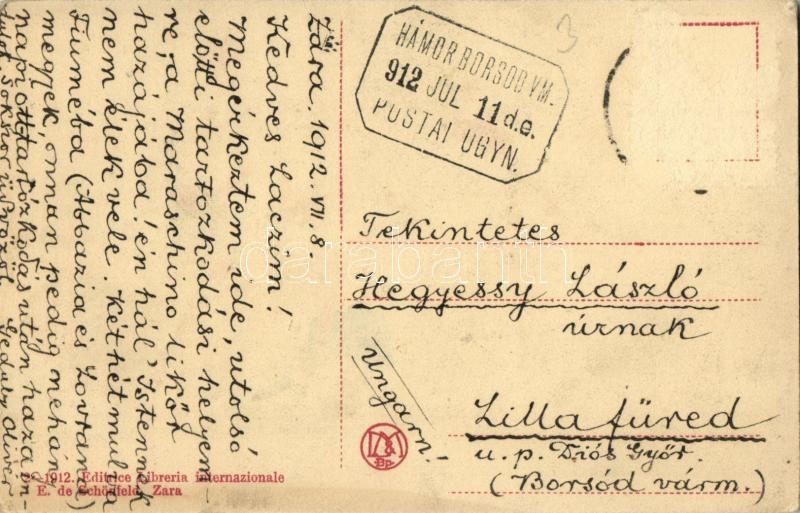 Zára, 1912. VII. 8.
Kedves Laczim!
Megérkeztem ide, utolsó
előtti tartozkodási helyem-
re, a Maraschino likőr
hazájába! én hál' Istennek
nem élek vele. Két hét mulva
Fiuméba (Abbazia és Lovrana)
megyek, onnan pedig néhány
napi otttartózkodás után haza in-
dulok. Sokszor üdvözöl
HÁMOR BORSOD VM.
912 JUL 11 d.e.
POSTAI UGYN.
3
Tekintetes
Hegyessy László
úrnak
Ungarn.
Lillafüred
u. p. Diós Győr.
(Borsód várm.)
1912. Editrice Libreria internazionale
E. de Schönfeld, Zara
darabanth